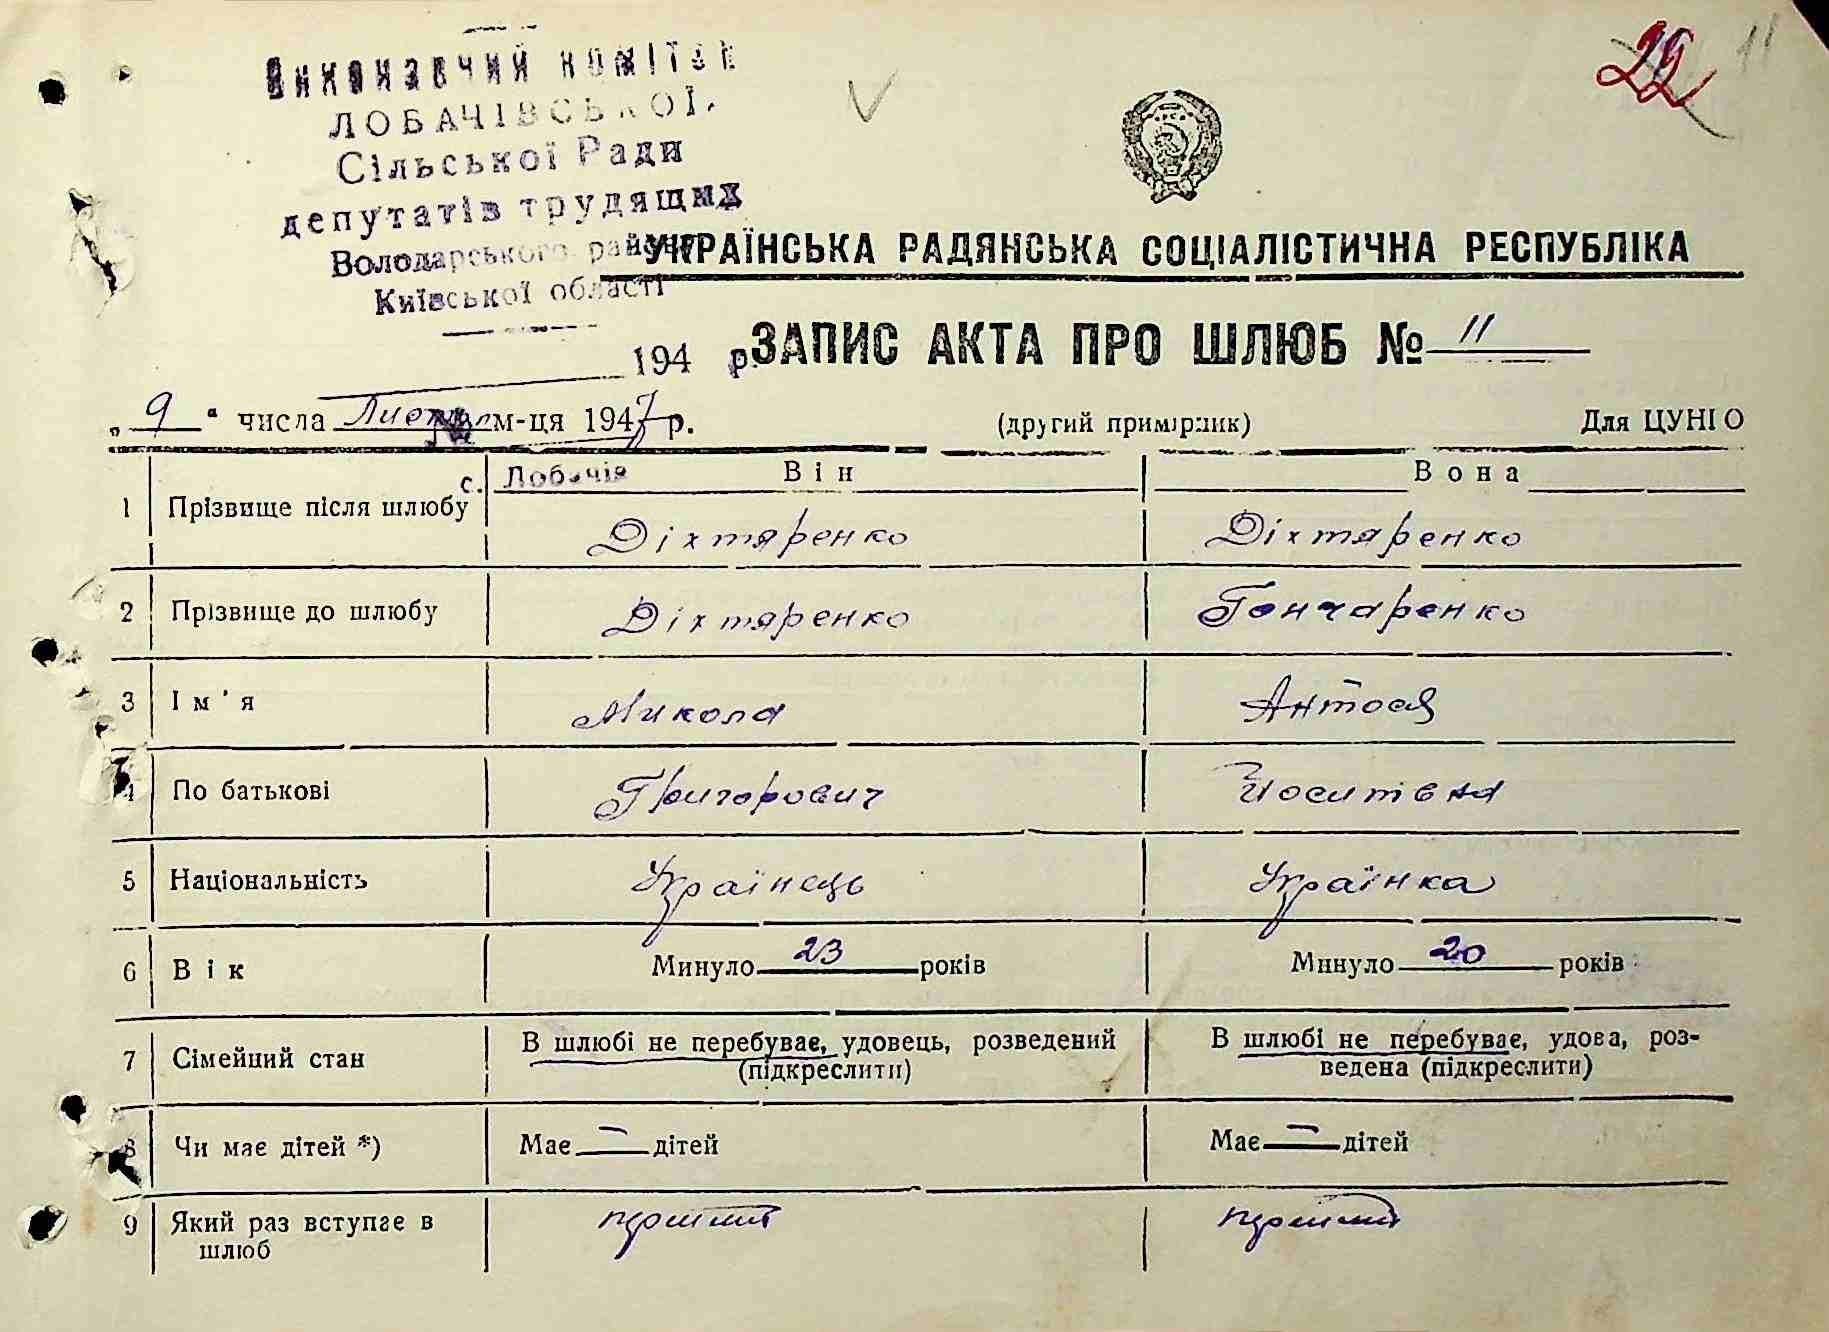 Виконавчий комітет
ЛОБАЧІВСЬКОЇ
Сільської Ради
депутатів трудящих
Володарського району
Київської області
194 р.
22 11
УКРАЇНСЬКА РАДЯНСЬКА СОЦІАЛІСТИЧНА РЕСПУБЛІКА
ЗАПИС АКТА ПРО ШЛЮБ № 11
„9“ числа м-ця 1947 р. (другий примірник) Для ЦУНГО
с. Лобачів Він Вона
1 Прізвище після шлюбу Діхтяренко Діхтяренко
2 Прізвище до шлюбу Діхтяренко Гончаренко
3 Ім'я Микола Антося
4 По батькові Григорович Йоситівна
5 Національність Українець Українка
6 Вік Минуло 23 років Минуло 20 років
7 Сімейний стан В шлюбі не перебуває, удовець, розведений (підкреслити) В шлюбі не перебуває, удова, роз-
ведена (підкреслити)
8 Чи має дітей *) Має — дітей Має — дітей
9 Який раз вступає в
шлюб